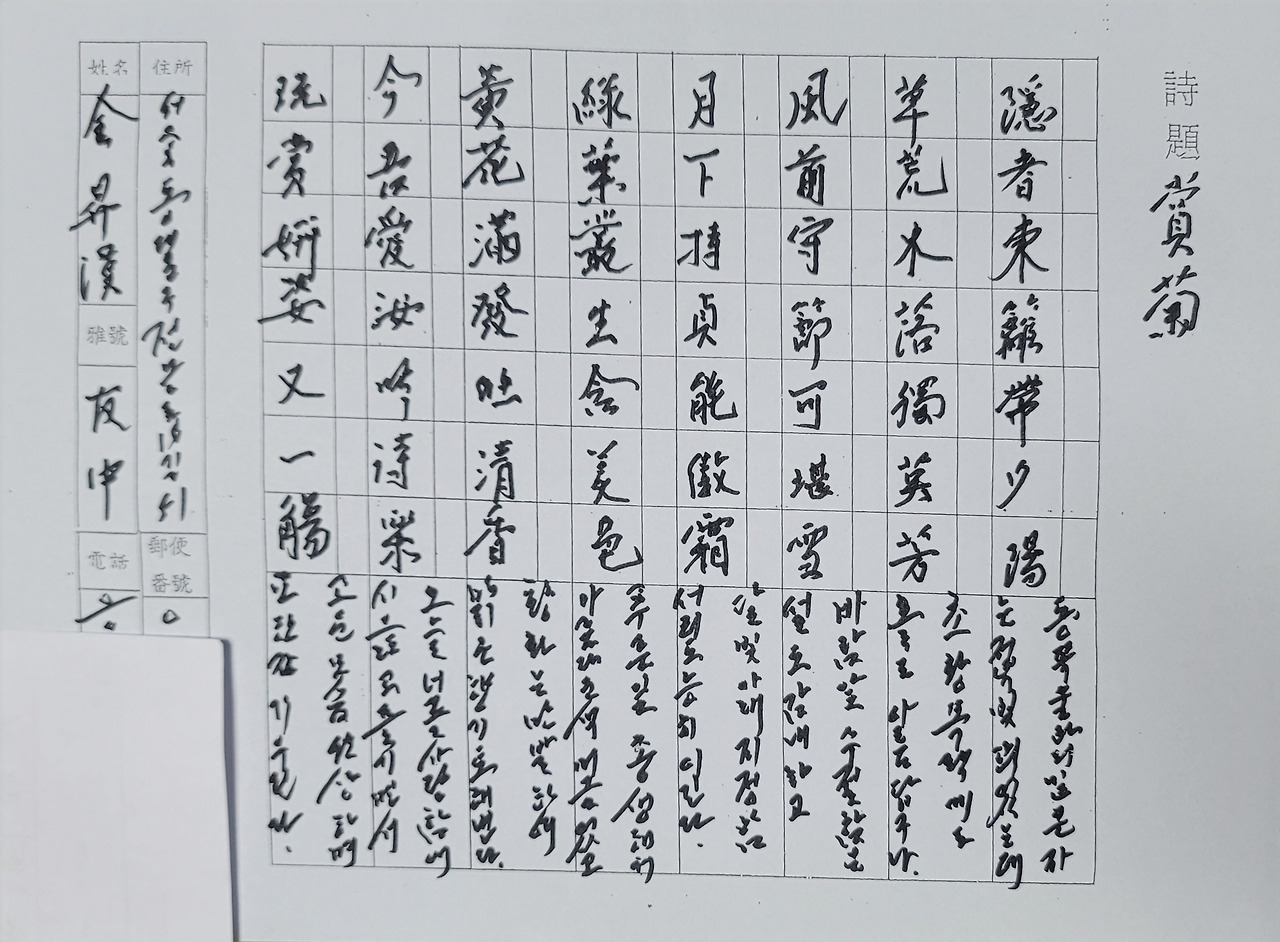 詩題 賞菊
隱者東籬帶夕陽
草荒木落獨英芳
초황 목락에도
홀로 아름답구나.
風前守節可堪雪
바람앞 수절함은
설도 감내하고
月下持貞能傲霜
달빛 아래 지정함
서리도 능히 이긴다.
綠葉叢生含美色
푸른잎 총생하여
黃花滿發吐清香
황화는 만발하여
맑은 향기 토해낸다.
今吾愛汝吟詩樂
오늘 너를 사랑함에
玩賞姸姿又一觴
고운 모습 완상하며
또 한잔 기울인다.
住所 서울 동대문구
郵便番號
姓名 金昇漢
雅號 友申
電話